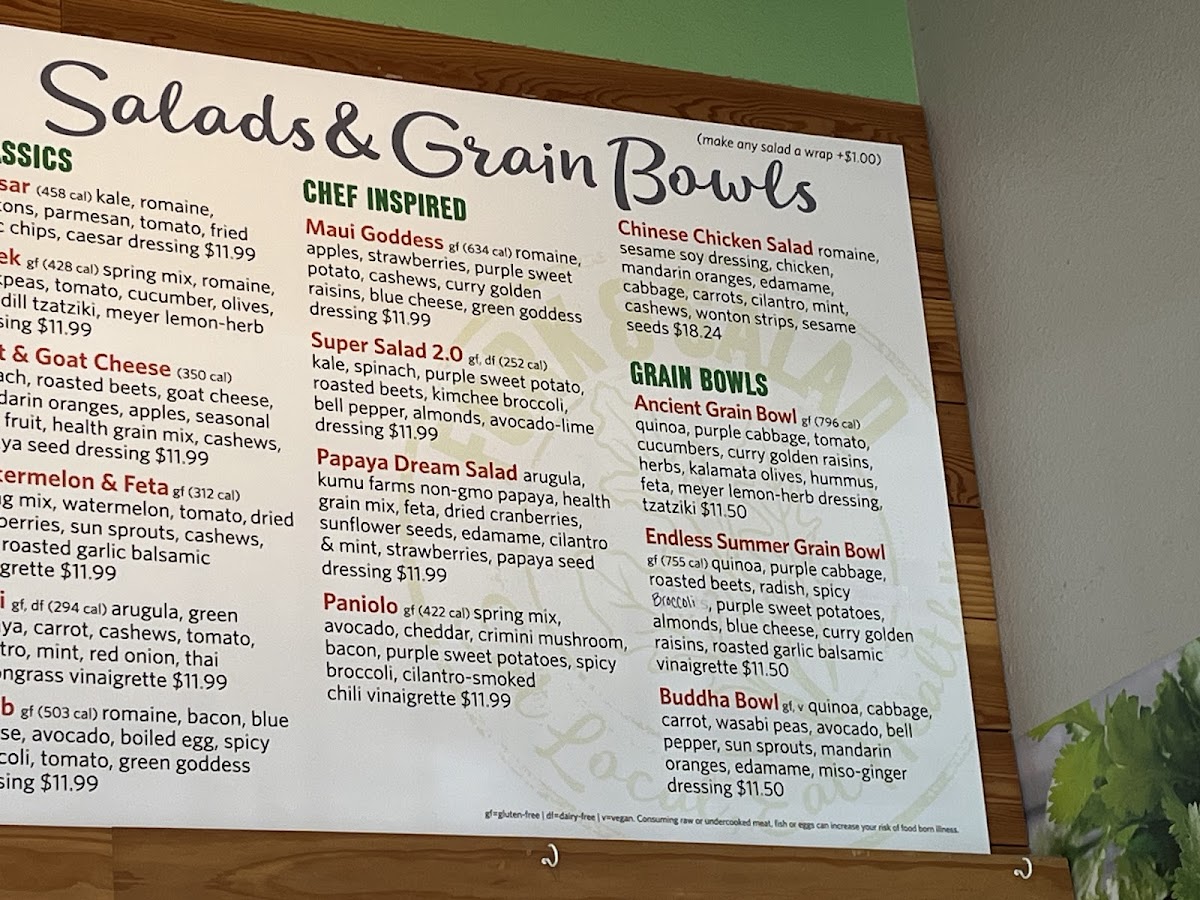 Salads & Grain Bowls
(make any salad a wrap +$1.00)
(458 cal) kale, romaine,
parmesan, tomato, fried
chips, caesar dressing $11.99
gf (428 cal) spring mix, romaine,
tomato, cucumber, olives,
dill tzatziki, meyer lemon-herb
$11.99
& Goat Cheese (350 cal)
roasted beets, goat cheese,
oranges, apples, seasonal
fruit, health grain mix, cashews,
seed dressing $11.99
& Feta gf (312 cal)
mix, watermelon, tomato, dried
sun sprouts, cashews,
roasted garlic balsamic
$11.99
gf, df (294 cal) arugula, green
carrot, cashews, tomato,
mint, red onion, thai
vinaigrette $11.99
gf (503 cal) romaine, bacon, blue
avocado, boiled egg, spicy
tomato, green goddess
$11.99
CHEF INSPIRED
Maui Goddess gf (634 cal) romaine,
apples, strawberries, purple sweet
potato, cashews, curry golden
raisins, blue cheese, green goddess
dressing $11.99
Super Salad 2.0 gf, df (252 cal)
kale, spinach, purple sweet potato,
roasted beets, kimchee broccoli,
bell pepper, almonds, avocado-lime
dressing $11.99
Papaya Dream Salad arugula,
kumu farms non-gmo papaya, health
grain mix, feta, dried cranberries,
sunflower seeds, edamame, cilantro
& mint, strawberries, papaya seed
dressing $11.99
Paniolo gf (422 cal) spring mix,
avocado, cheddar, crimini mushroom,
bacon, purple sweet potatoes, spicy
broccoli, cilantro-smoked
chili vinaigrette $11.99
Chinese Chicken Salad romaine,
sesame soy dressing, chicken,
mandarin oranges, edamame,
cabbage, carrots, cilantro, mint,
cashews, wonton strips, sesame
seeds $18.24
GRAIN BOWLS
Ancient Grain Bowl gf (796 cal)
quinoa, purple cabbage, tomato,
cucumbers, curry golden raisins,
herbs, kalamata olives, hummus,
feta, meyer lemon-herb dressing,
tzatziki $11.50
Endless Summer Grain Bowl
gf (755 cal) quinoa, purple cabbage,
roasted beets, radish, spicy
Broccoli, purple sweet potatoes,
almonds, blue cheese, curry golden
raisins, roasted garlic balsamic
vinaigrette $11.50
Buddha Bowl gf, v quinoa, cabbage,
carrot, wasabi peas, avocado, bell
pepper, sun sprouts, mandarin
oranges, edamame, miso-ginger
dressing $11.50
gf=gluten-free | df=dairy-free | v=vegan. Consuming raw or undercooked meat, fish or eggs can increase your risk of food born illness.
FORK & SALAD